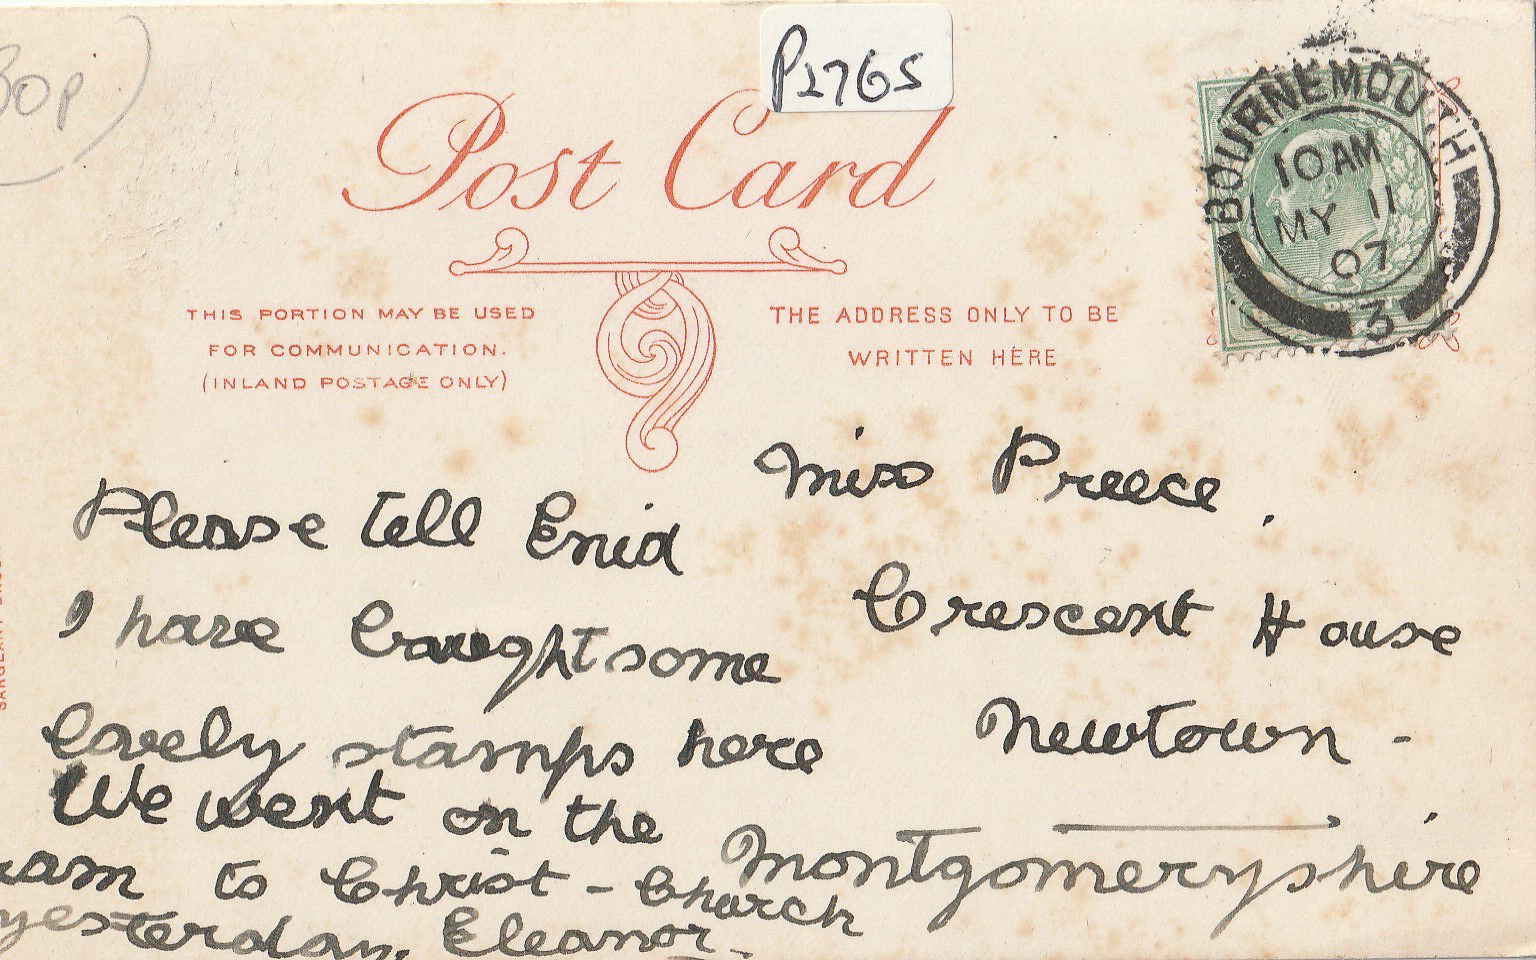 P1765
Post Card
THIS PORTION MAY BE USED
FOR COMMUNICATION.
(INLAND POSTAGE ONLY)
THE ADDRESS ONLY TO BE
WRITTEN HERE
BOURNEMOUTH
10 AM
MY 11
07
3
Please tell Enid
I have bought some
lovely stamps here
We went on the
to Christ-Church
yesterday. Eleanor.
Miss Preece,
Crescent House
Newtown -
Montgomeryshire